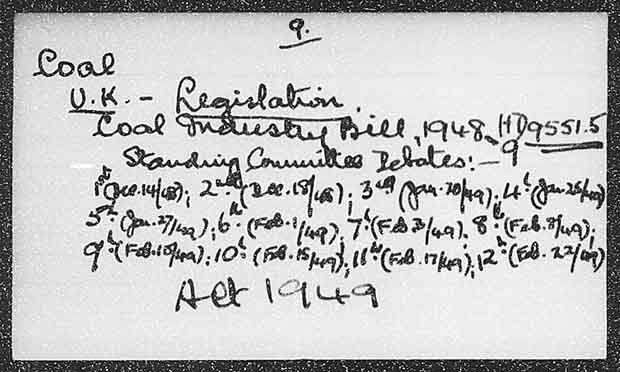 9.
Coal
U.K. - Legislation.
Coal Industry Bill, 1948-9 HD9551.5
Standing Committee Debates:-
1st (Dec.14/48); 2nd (Dec.18/48); 3rd (Jan.20/49); 4th (Jan.25/49)
5th (Jan.27/49); 6th (Feb.1/49); 7th (Feb 3/49). 8th (Feb.8/49);
9th (Feb.10/49); 10th (Feb.15/49); 11th (Feb.17/49); 12th (Feb.22/49)
Act 1949